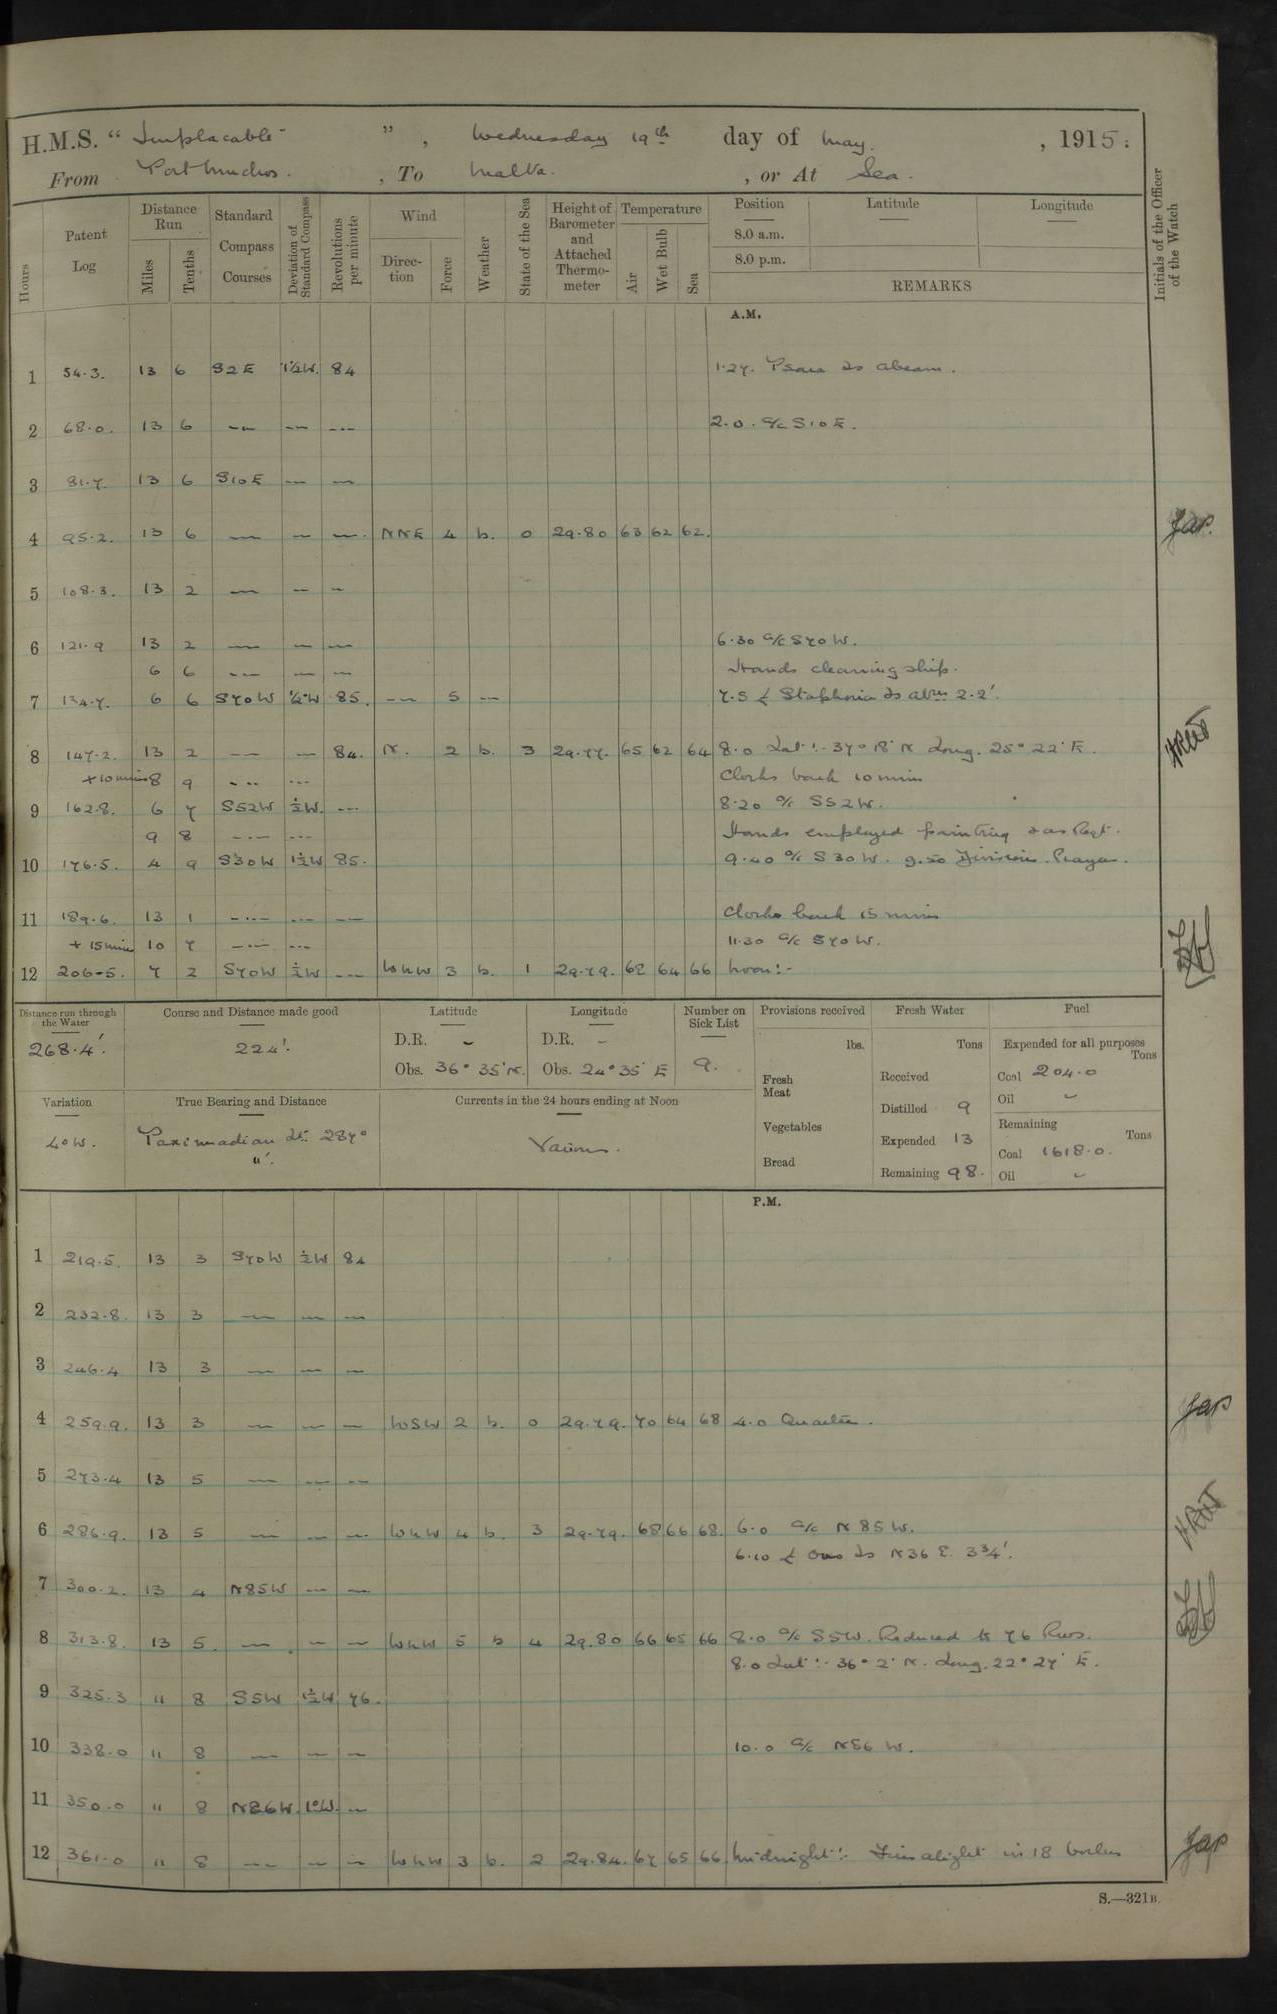 H.M.S. "Implacable", Wednesday 19th day of May, 1915:
From Port Mudros, To Malta, or At Sea.
Hours
Patent Log
Distance Run
Miles
Tenths
Standard Compass Courses
Deviation of Standard Compass
Revolutions per minute
Wind
Direction
Force
Weather
State of the Sea
Height of Barometer and Attached Thermometer
Temperature
Air
Wet Bulb
Sea
Position
8.0 a.m.
8.0 p.m.
Latitude
Longitude
REMARKS
Initials of the Officer of the Watch
A.M.
1 54.3. 13 6 S2E 1½W. 84 1.27. Psara Is abeam.
2 68.0. 13 6 — — — 2.0. a/c S10E.
3 81.7. 13 6 S10E — —
4 95.2. 13 6 — — — NNE 4 b. 0 29.80 63 62 62.
5 108.3. 13 2 — — —
6 121.9 13 2 — — — 6.30 a/c S70W.
6 6 — — — Hands cleaning ship.
7 134.7. 6 6 S70W ½W 85. — 5 — 7.5 Staphonia Is abm 2.2'.
8 147.2. 13 2 — — 84. N. 2 b. 3 29.77. 65 62 64 8.0 Lat :- 37° 18' N Long. 25° 22' E.
+10 mins 8 9 — — Clocks back 10 mins
9 162.8. 6 7 S52W ½W. — 8.20 a/c S52W.
9 8 — — Hands employed painting & as Reqt.
10 176.5. 4 9 S30W 1½W 85. 9.40 a/c S30W. 9.50 Divisions. Prayers.
11 189.6. 13 1 — — — Clocks back 15 mins
+15 mins 10 7 — — 11.30 a/c S70W.
12 206.5. 7 2 S70W ½W — WNW 3 b. 1 29.79. 68 64 66 Noon:-
Distance run through the Water
268.4'.
Course and Distance made good
224'.
Latitude
D.R. -
Obs. 36° 35' N.
Longitude
D.R. -
Obs. 24° 35' E
Number on Sick List
9.
Provisions received
lbs.
Fresh Meat
Vegetables
Bread
Fresh Water
Tons
Received
Distilled 9
Expended 13
Remaining 98.
Fuel
Expended for all purposes
Tons
Coal 204.0
Oil -
Remaining
Tons
Coal 1618.0.
Oil -
Variation
4°W.
True Bearing and Distance
Paximadian Lt. 287°
11'.
Currents in the 24 hours ending at Noon
Various.
P.M.
1 219.5. 13 3 S70W ½W 84
2 232.8. 13 3 — — —
3 246.4 13 3 — — —
4 259.9. 13 3 — — — WSW 2 b. 0 29.79. 70 64 68 4.0 Quarters.
5 273.4 13 5 — — —
6 286.9. 13 5 — — — WNW 4 b. 3 29.79. 68 66 68. 6.0 a/c N85W.
6.10 Ovo Is N36E. 3¾'.
7 300.2. 13 4 N85W — —
8 313.8. 13 5. — — — WNW 5 b 4 29.80 66 65 66 8.0 a/c S5W. Reduced to 76 Revs.
8.0 Lat :- 36° 2' N. Long. 22° 27' E.
9 325.3 11 8 S5W 1½W 76.
10 338.0 11 8 — — — 10.0 a/c N86W.
11 350.0 11 8 N86W. 1°W. —
12 361.0 11 8 — — — WNW 3 b. 2 29.84. 67 65 66 Midnight:- Fires alight in 18 boilers
S.—321B.